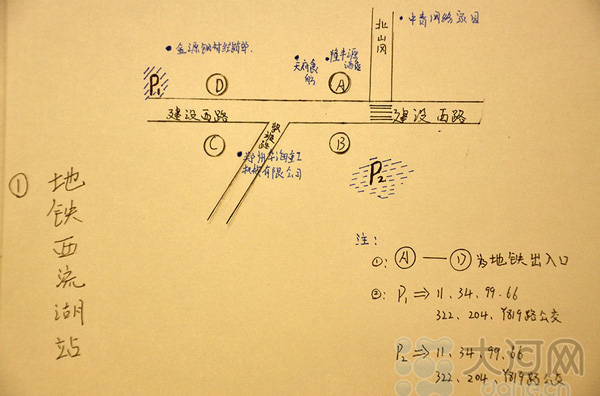 北山冈
·中青网络家园
·金源钢材经销部
·天府食
·隆丰源
酒店
P1
D
A
建设西路
建设西路
铁道路
C
·郑州东海重工
机械有限公司
B
P2
① 地铁西流湖站
注:
①: A——D为地铁出入口
②: P1⇒11、34、99、66
322、204、Y819路公交
P2⇒11、34、99、66
322、204、Y819路公交
大河网
dahe.cn